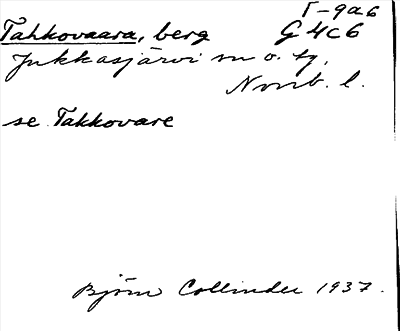 T-9a6
Tahkovaara, berg G4c6
Jukkasjärvi sn o. tg,
Norrb. l.
se Takkovare
Björn Collinder 1937.